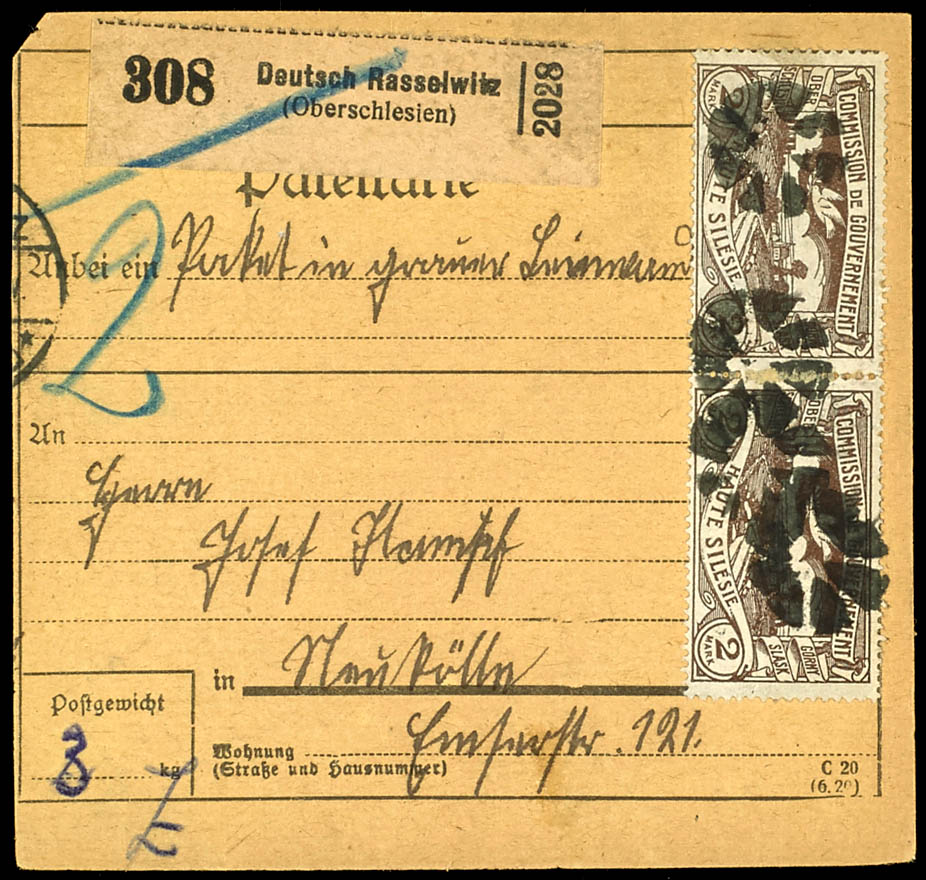 308 Deutsch Rasselwitz
(Oberschlesien)
2028
Paketkarte
Anbei ein Paket in grauer Leinwand
An
Herrn
Josef
in Neukölln
Postgewicht
8
kg
Wohnung
(Straße und Hausnummer)
Emserstr. 121.
C 20
(6.20)
COMMISSION DE GOUVERNEMENT
HAUTE SILESIE
OBER
SCHLESIEN
2
MARK
2
COMMISSION DE GOUVERNEMENT
HAUTE SILESIE
OBER
2
GÓRNY
ŚLĄSK
2
MARK
2